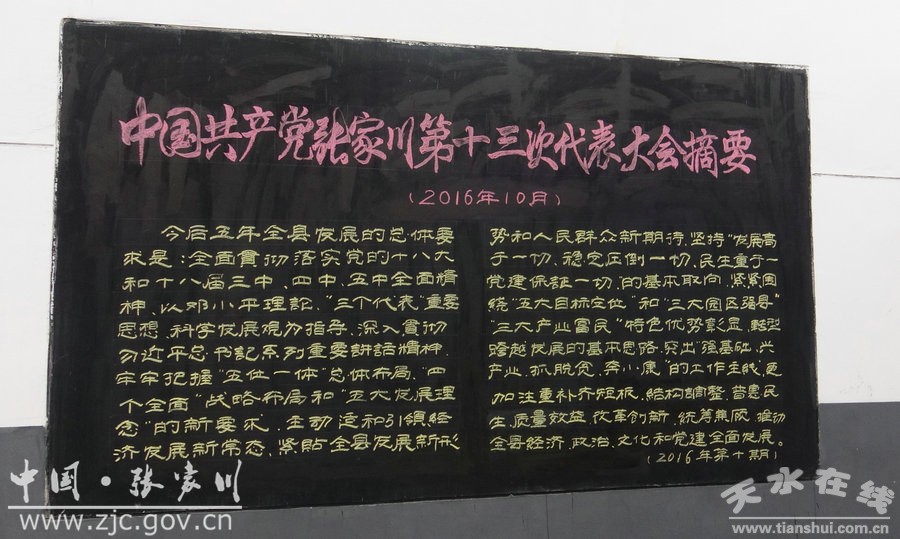 中国共产党张家川第十三次代表大会摘要
(2016年10月)
今后五年全县发展的总体要
求是:全面贯彻落实党的十八大
和十八届三中、四中、五中全面精
神,以邓小平理论、“三个代表”重要
思想、科学发展观为指导,深入贯彻
习近平总书记系列重要讲话精神,
牢牢把握“五位一体”总体布局、“四
个全面”战略布局和“五大发展理
念”的新要求,主动适和引领经
济发展新常态,紧贴全县发展新形
势和人民群众新期待,坚持“发展高
于一切、稳定压倒一切、民生重于一
党建保证一切”的基本取向,紧紧围
绕“五大目标定位”和“三大园区强县”
“三大产业富民”特色优势彰显、转型
跨越发展的基本思路,突出“强基础、兴
产业、抓脱贫、奔小康”的工作主线,更
加注重补齐短板、结构調整、普惠民
生、质量效益、改革创新,统筹焦成、推动
全县经济、政治、文化和党建全面发展。
(2016年第十期)
中国·张家川
www.zjc.gov.cn
天水在线
www.tianshui.com.cn